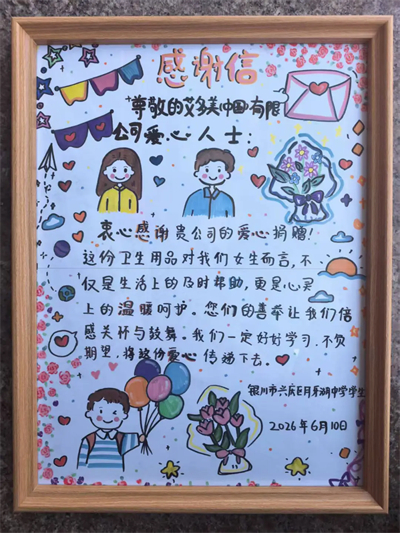 感谢信
尊敬的艾多美中国有限
公司爱心人士：
衷心感谢贵公司的爱心捐赠！
这份卫生用品对我们女生而言，不
仅是生活上的及时帮助，更是心灵
上的温暖呵护。您们的善举让我们倍
感关怀与鼓舞。我们一定好好学习，不负
期望，将这份爱心传递下去。
银川市兴庆区月牙湖中学学生
2026年6月10日